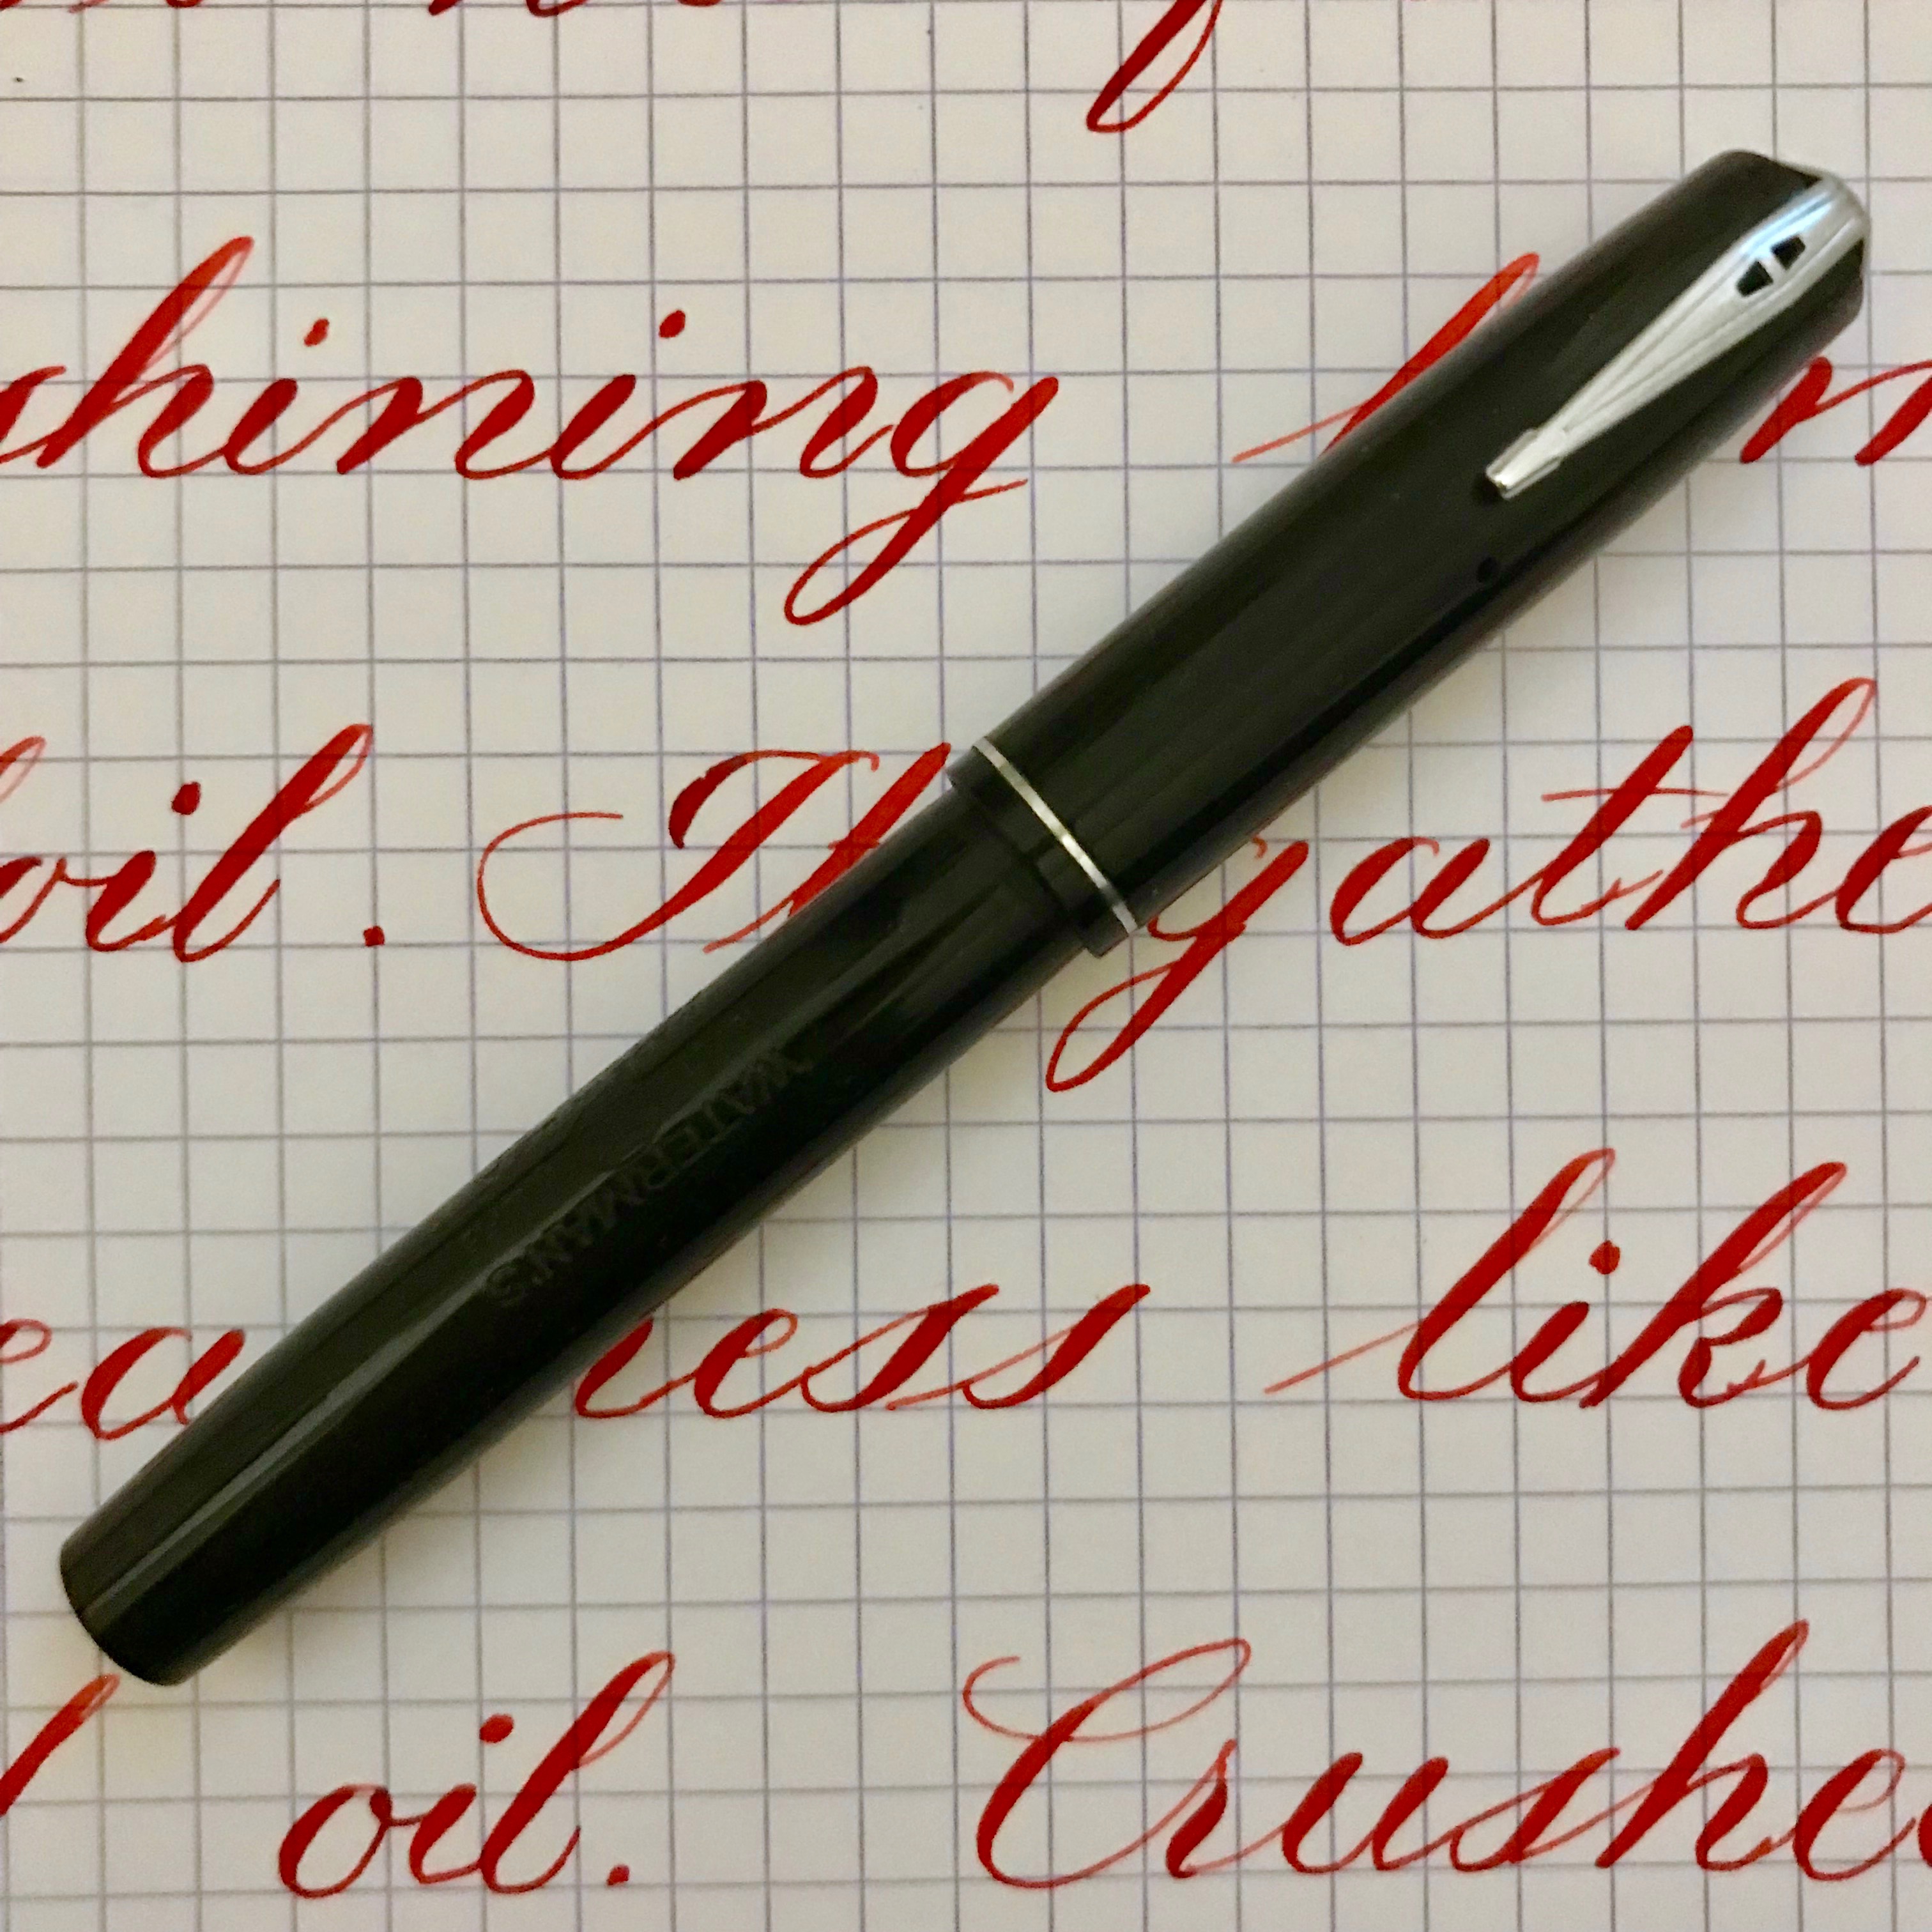 shining
oil. It gathe
WATERMAN'S
ea ness like
oil. Crushe